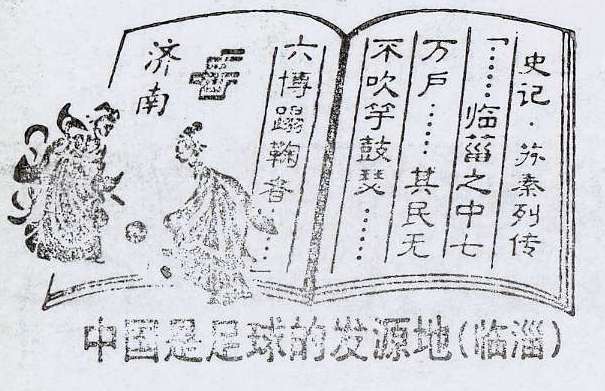 史记·苏秦列传
「……临菑之中七
万户……其民无
不吹竽鼓瑟……
六博蹋鞠者……」
济南
中国是足球的发源地(临淄)